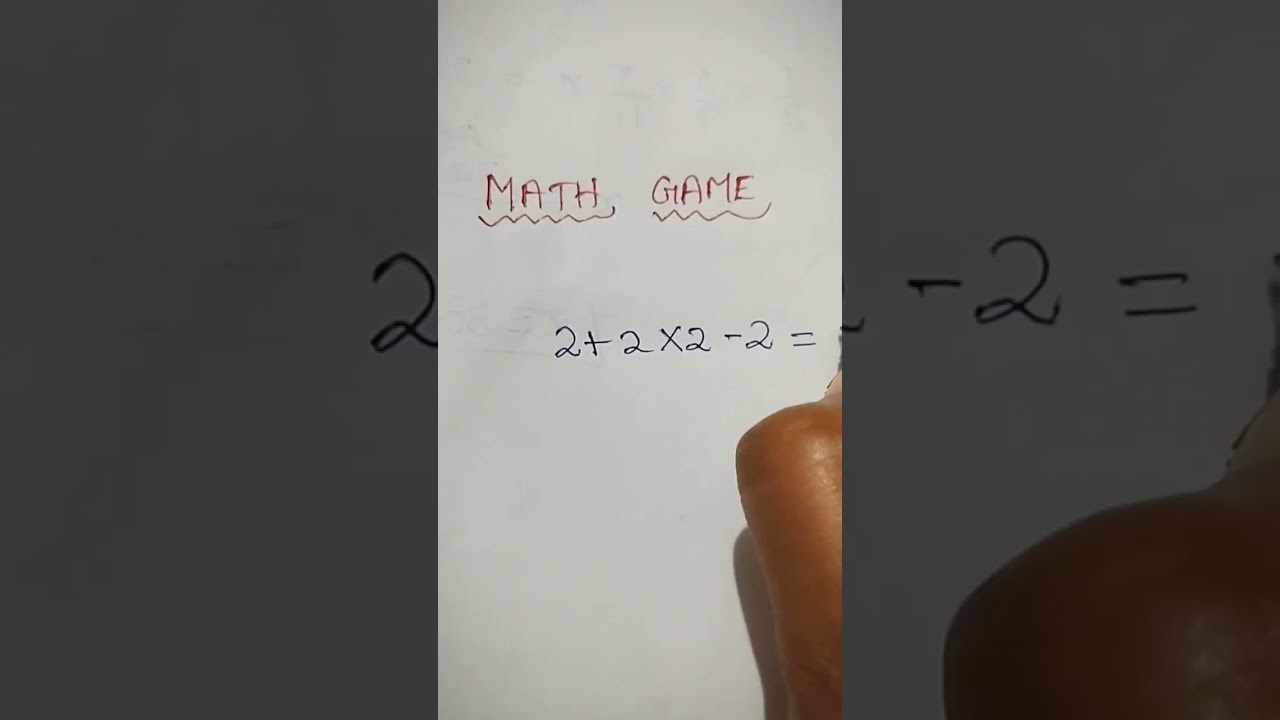 MATH GAME
2+2×2-2=